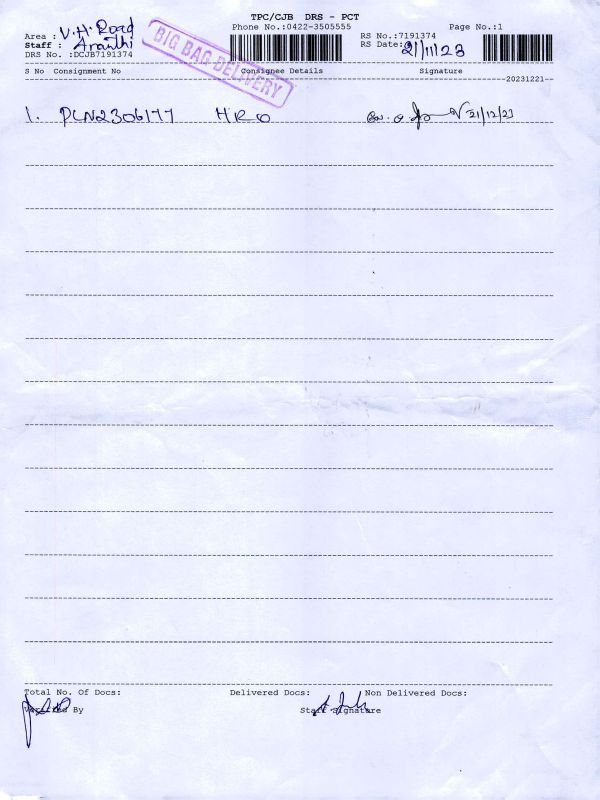 TPC/CJB DRS - PCT
Phone No.:0422-3505555
Page No.:1
Area : V.H. Road
RS No.:7191374
Staff :
RS Date: 21/11/23
DRS No. :DCJB7191374
BIG BAG DELIVERY
S No Consignment No Consignee Details Signature
20231221
1. PLN2306177 HRO 21/12/23
Total No. Of Docs: Delivered Docs: Non Delivered Docs:
Verified By Staff Signature